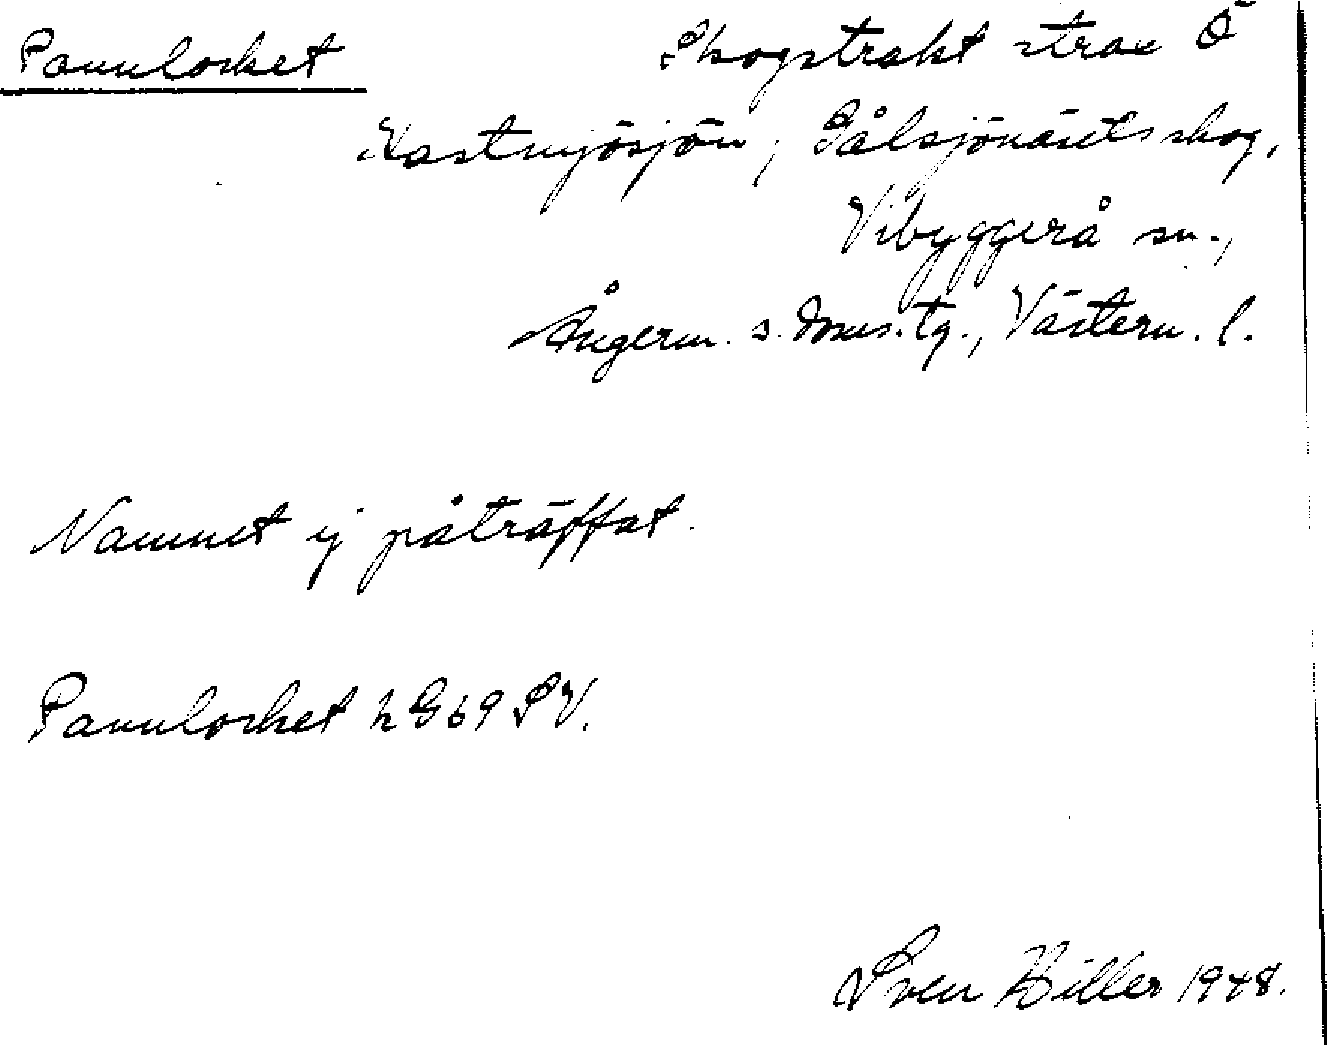 Pannlocket
Skogstrakt strax Ö
Kastmyösjön, Gålsjönäsets skog,
Vibyggerå sn.,
Ångerm. s. dms. tg., Västern. l.
Namnet ej påträffat.
Pannlocket h G 69 SV.
Sven Hiller 1948.